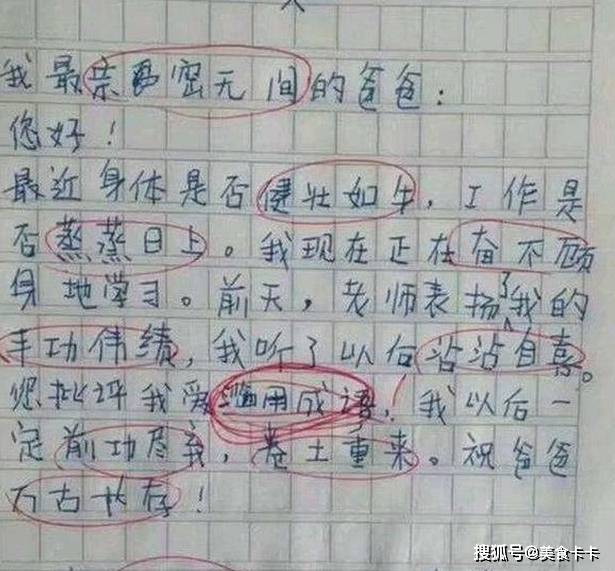 我最亲密无间的爸爸：
您好！
最近身体是否健壮如牛，工作是
否蒸蒸日上。我现在正在奋不顾
身地学习。前天，老师表扬了我的
丰功伟绩，我听了以后沾沾自喜。
您批评我爱滥用成语，我以后一
定前功尽弃，卷土重来。祝爸爸
万古长存！
搜狐号@美食卡卡